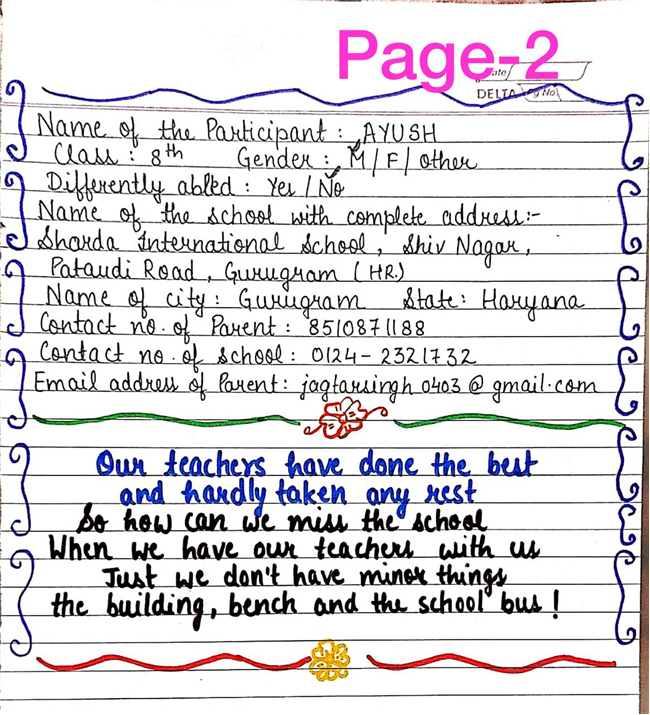 Page-2
Date
DELTA Pg No
Name of the Participant : AYUSH
Class : 8th Gender : M / F / other
Differently abled : Yes / No
Name of the school with complete address:-
Sharda International School, Shiv Nagar,
Pataudi Road, Gurugram (HR)
Name of city : Gurugram State : Haryana
Contact no. of Parent : 8510871188
Contact no. of School : 0124-2321732
Email address of Parent: jagtarsingh0403@gmail.com
Our teachers have done the best
and hardly taken any rest
So how can we miss the school
When we have our teachers with us
Just we don't have minor things
the building, bench and the school bus !